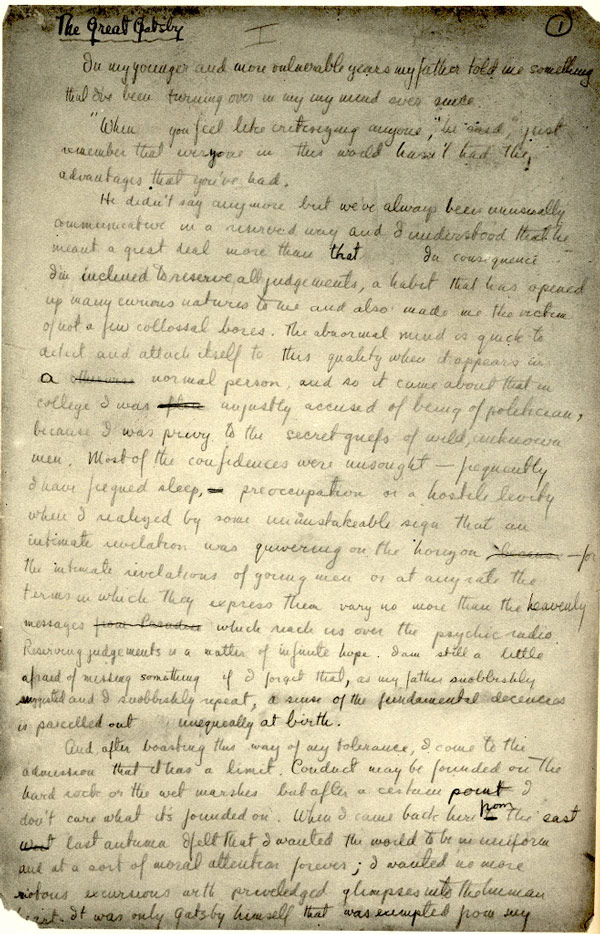 The Great Gatsby
I
1
In my younger and more vulnerable years my father told me something
that I've been turning over in my my mind ever since.
"When you feel like critisizing anyone," he said, "just
remember that everyone in this world hasn't had the
advantages that you've had.
He didn't say anymore but we've always been unusually
communicative in a reserved way and I understood that he
meant a great deal more than that In consequence
I'm inclined to reserve all judgements, a habit that has opened
up many curious natures to me and also made me the victim
of not a few collossal bores. The abnormal mind is quick to
detect and attach itself to this quality when it appears in
a otherwise normal person, and so it came about that in
college I was unjustly accused of being of politician,
because I was privy to the secret griefs of wild, unknown
men. Most of the confidences were unsought — frequently
I have fiegned sleep, preoccupation or a hostile levity
when I realized by some unmistakeable sign that an
intimate revelation was quivering on the horizon — for
the intimate revelations of young men or at any rate the
terms in which they express them vary no more than the heavenly
messages from Pasadena which reach us over the psychic radio.
Reserving judgements is a matter of infinite hope. I am still a little
afraid of missing something if I forget that, as my father snobbishly
suggested and I snobbishly repeat, a sense of the fundamental decencies
is parcelled out unequally at birth.
And, after boasting this way of my tolerance, I come to the
admission that it has a limit. Conduct may be founded on the
hard rock or the wet marshes but after a certain point I
don't care what it's founded on. When I came back here from the east
west last autumn I felt that I wanted the world to be in uniform
and at a sort of moral attention forever; I wanted no more
riotous excursions with priveledged glimpses into the human
heart. It was only Gatsby himself that was exempted from my